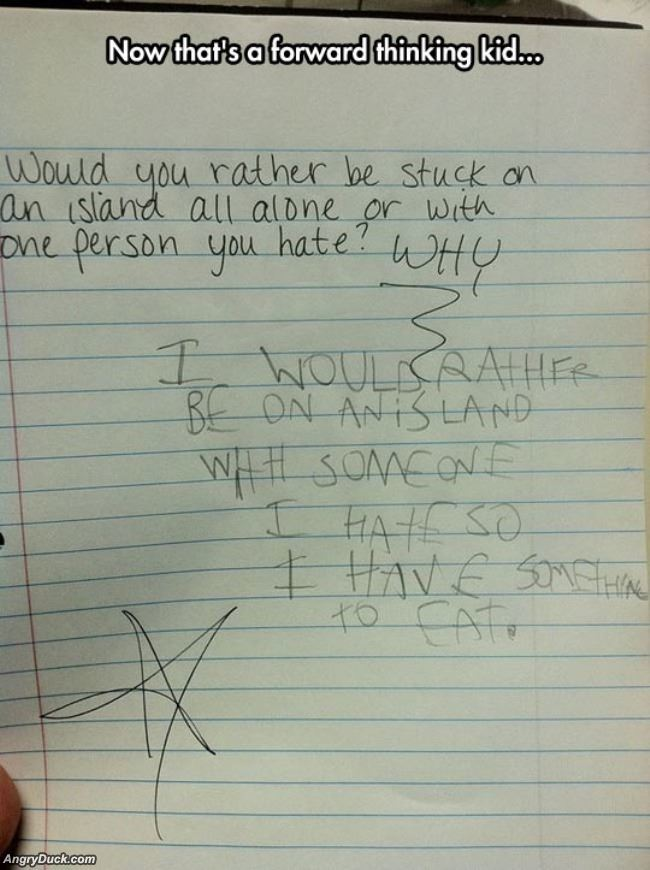 Now that's a forward thinking kid...
Would you rather be stuck on
an island all alone or with
one person you hate? WHY
I WOULD RATHER
BE ON AN ISLAND
WITH SOMEONE
I HATE SO
I HAVE SOMETHING
TO EAT.
AngryDuck.com